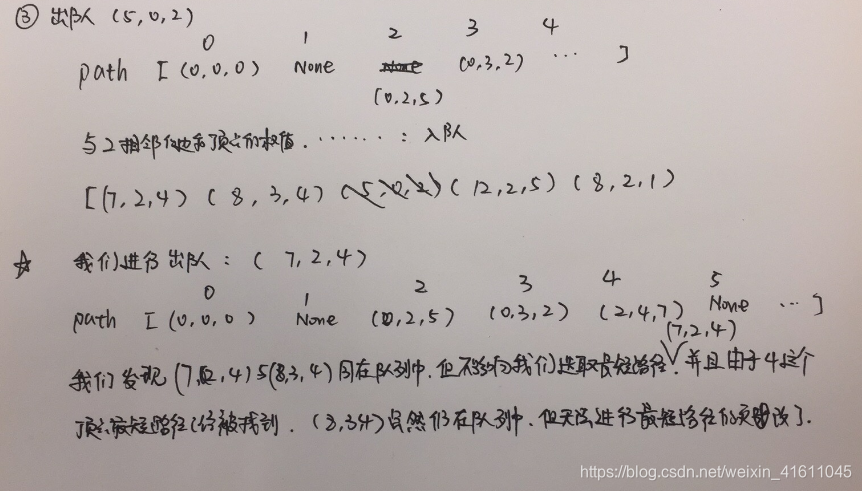 ③ 出队 (5,0,2)
0 1 2 3 4
path [(0,0,0) None None (0,3,2) ... ]
(0,2,5)
与2相邻 顶点的权值. ······ : 入队
[(7,2,4) (8,3,4) (5,0,2) (12,2,5) (8,2,1)
☆ 我们进行出队: (7,2,4)
0 1 2 3 4 5
path [(0,0,0) None (0,2,5) (0,3,2) (2,4,7) None ... ]
(7,2,4)
我们发现 (7,2,4)与(8,3,4)同在队列中, 但 我们选取最短路径. 并且由于4这个
顶点最短路径已经被找到. (8,3,4)虽然仍在队列中, 但无法进行最短路径的更改了.
https://blog.csdn.net/weixin_41611045